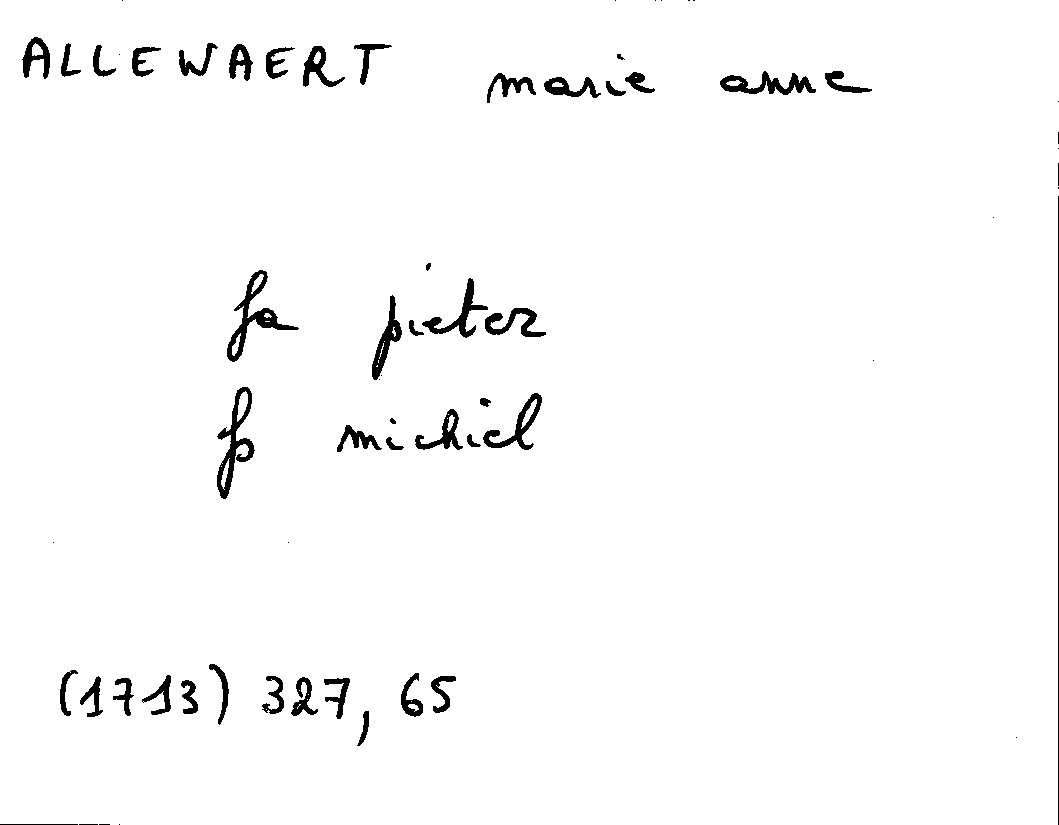 ALLEWAERT marie anne
fa pieter
fs michiel
(1713) 327, 65